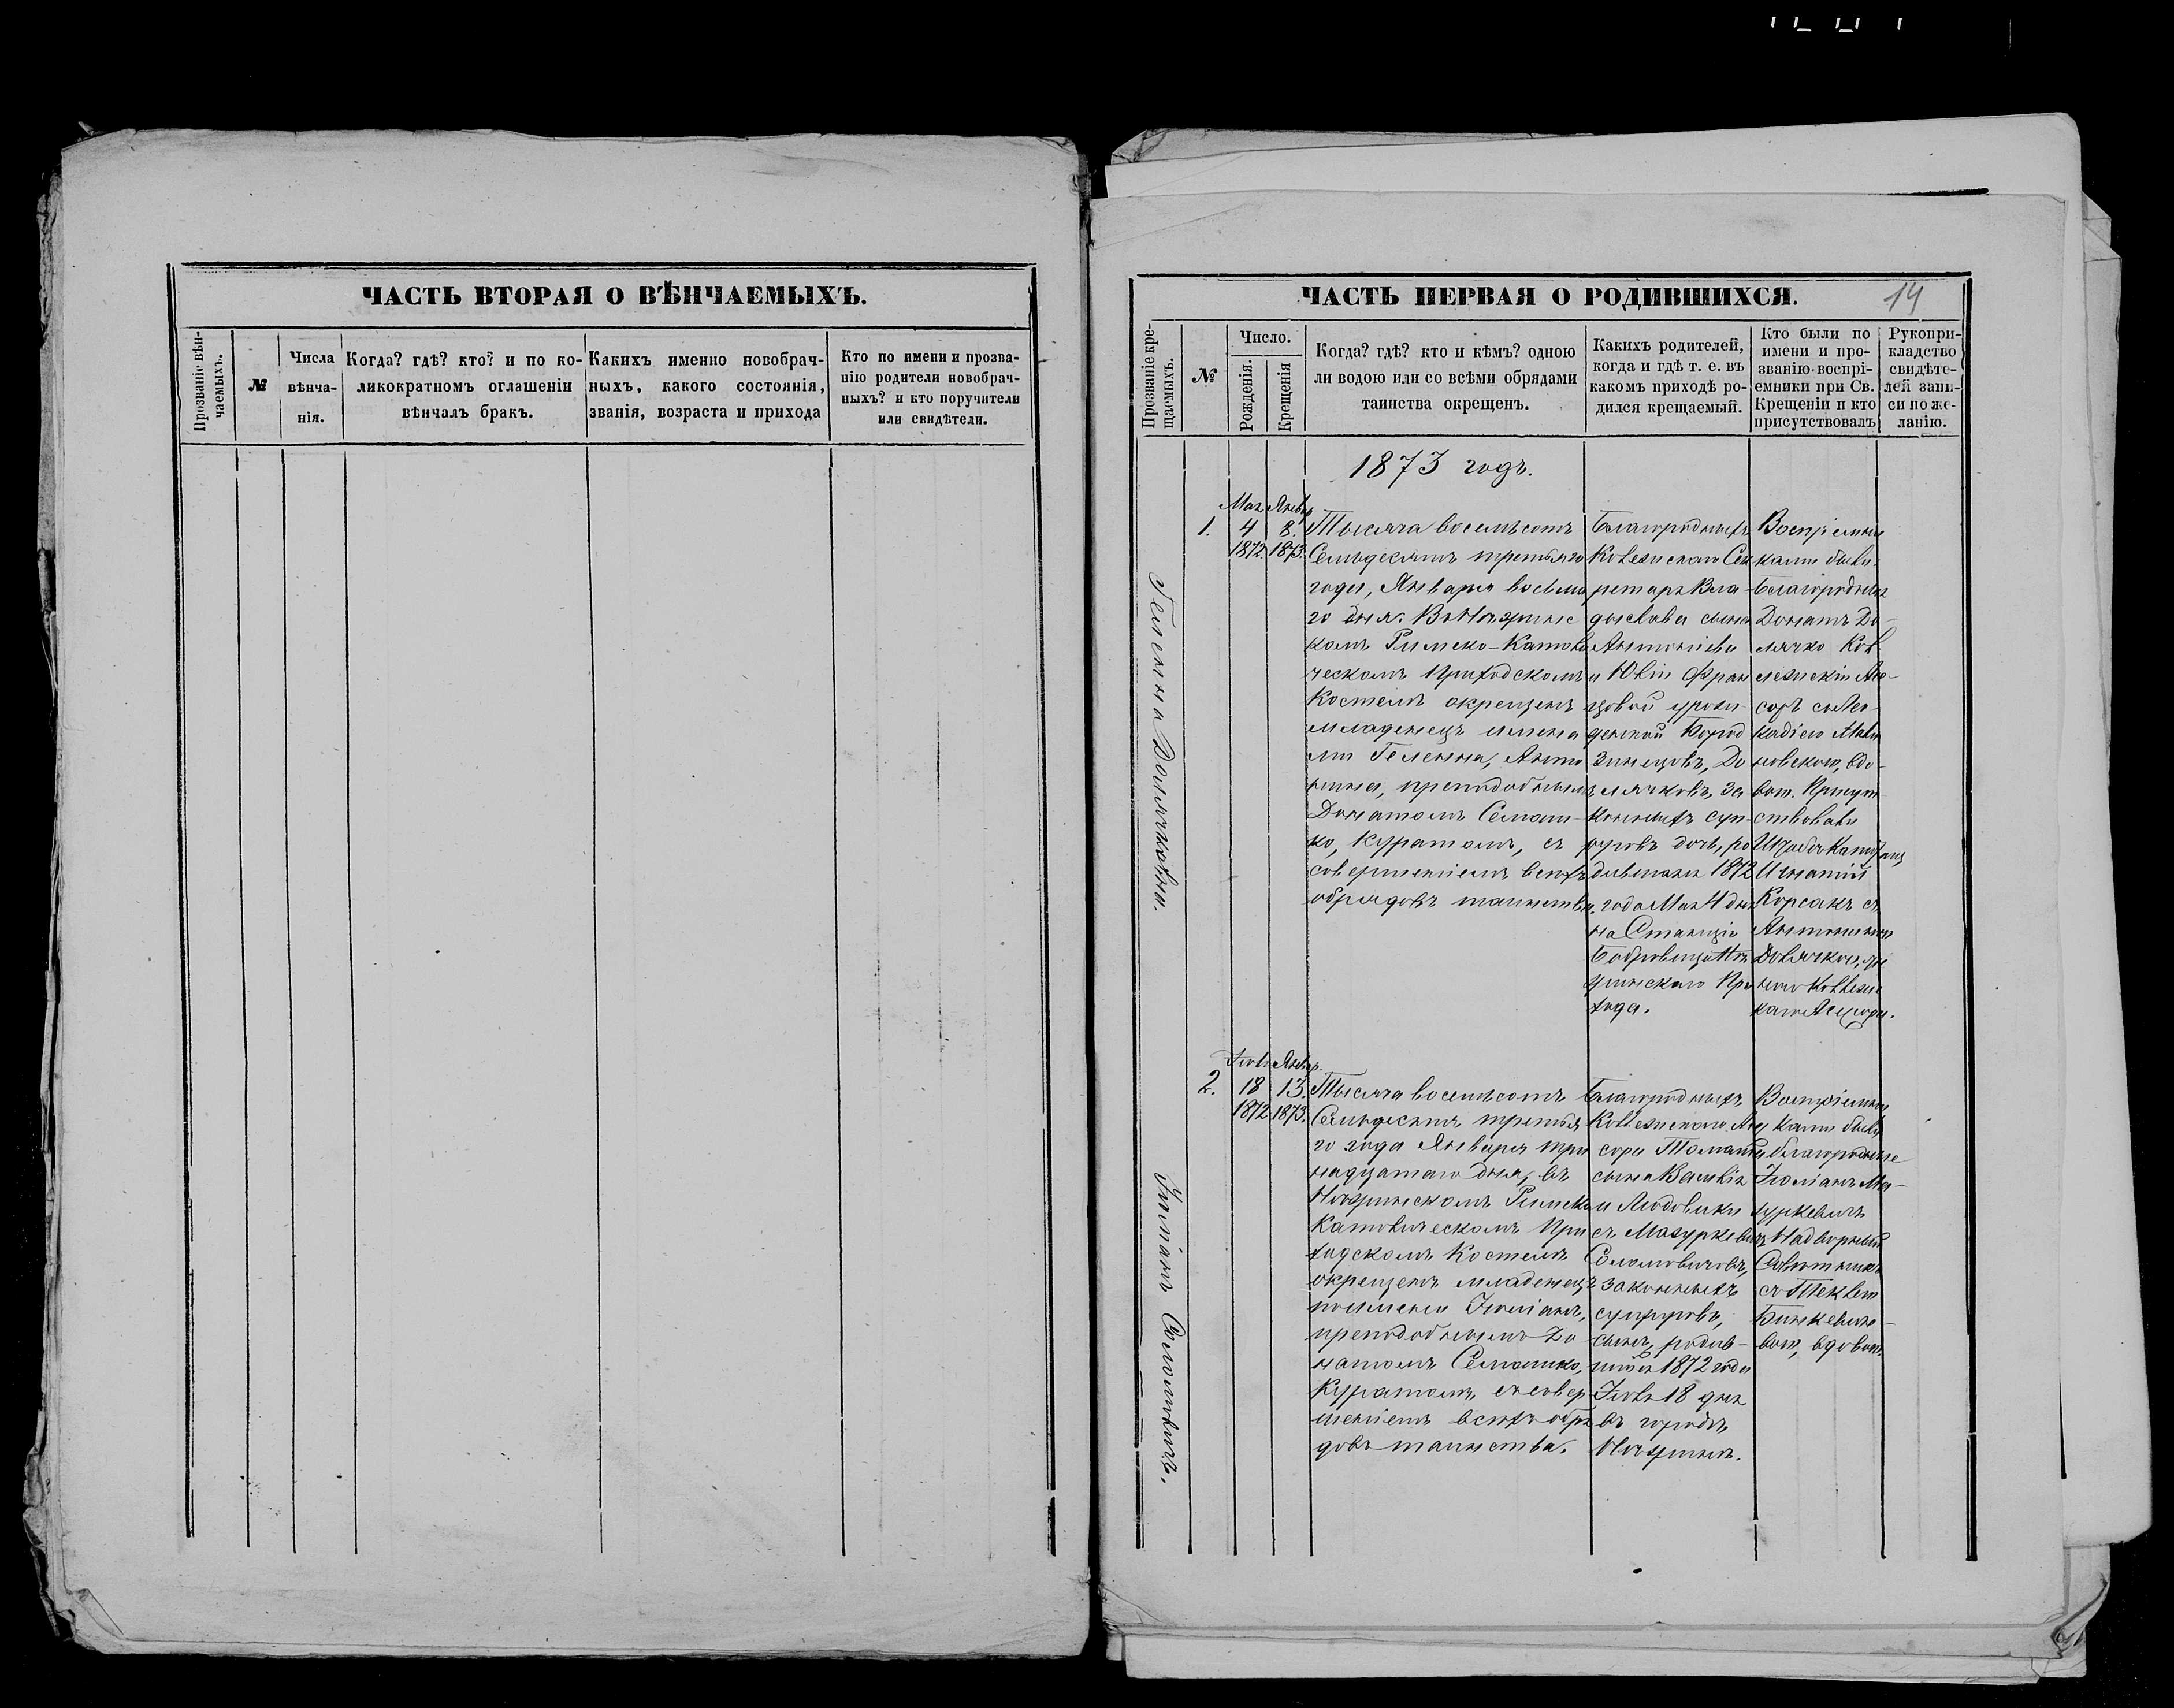 ЧАСТЬ ВТОРАЯ О ВѢНЧАЕМЫХЪ.
Прозваніе вѣн-
чаемыхъ.
№
Числа
вѣнча-
нія.
Когда? гдѣ? кто? и по ко-
ликократномъ оглашеніи
вѣнчалъ бракъ.
Какихъ именно новобрач-
ныхъ, какого состоянія,
званія, возраста и прихода
Кто по имени и прозва-
нію родители новобрач-
ныхъ? и кто поручители
или свидѣтели.
ЧАСТЬ ПЕРВАЯ О РОДИВШИХСЯ.
14
Прозваніе кре-
щаемыхъ.
№
Число.
Рожденія.
Крещенія
Когда? гдѣ? кто и кѣмъ? одною
ли водою или со всѣми обрядами
таинства окрещенъ.
Какихъ родителей,
когда и гдѣ т. е. въ
какомъ приходѣ ро-
дился крещаемый.
Кто были по
имени и про-
званію воспрі-
емники при Св.
Крещеніи и кто
присутствовалъ
Рукопри-
кладство
свидѣте-
лей запи-
си по же-
ланію.
1873 годъ.
Геленна
1.
Мая
4
1872.
Январ
8.
1873.
Тысяча восемьсотъ
Семьдесятъ третьяго
года, Января восьма
го дня. Въ
комъ Римско-Катол
ческомъ Приходскомъ
Костелѣ окрещенъ
младенецъ имена
ми Геленна, Анто
нина, преподобнымъ
Донатомъ Семаш-
ко, Куратомъ, съ
совершеніемъ всѣхъ
обрядовъ таинства.
Благородныхъ
Коллежскаго Сек
ретаря Вла-
дислава сына
Антоніева
и Юліи Фран
цовой урож
денной Бород
зичовъ, До
мячковъ, за
конныхъ суп-
руговъ дочь, ро
дившаяся 1872
года Мая 4 дня
на Станціи
Бобровица
скаго При
хода.
Воспріемни
ками были
Благородные
Донатъ До-
мячко Кол
лежскій Асе-
соръ съ Лео-
кадіею
вдо-
вою. Присут
ствовали
Штабсъ Капитанъ
Игнатій
Корсакъ съ
Антониною
Домячкою, же
ною Коллежс
каго Асессора.
Юліанъ Соломовичъ.
2.
Іюля
18
1872
Январ.
13.
1873.
Тысяча восемьсотъ
Семьдесятъ третья
го года Января три
надцатаго дня, въ
Римско
Католическомъ При
ходскомъ Костелѣ
окрещенъ младенецъ
по имени Юліанъ,
преподобнымъ До
натомъ Семашко,
Куратомъ, съ совер
шеніемъ всѣхъ обря
довъ таинства.
Благородныхъ
Коллежскаго Асес
сора
сына
и Людовики
съ Мазуркевич
Соломовичовъ,
законныхъ
супруговъ,
сынъ, родив-
шійся 1872 года
Іюля 18 дня
въ городѣ
Воспріемни
ками были
благородные
Юліанъ Ма-
зуркевичъ
Надворный
Совѣтникъ
съ Теклею
вою, вдовою.